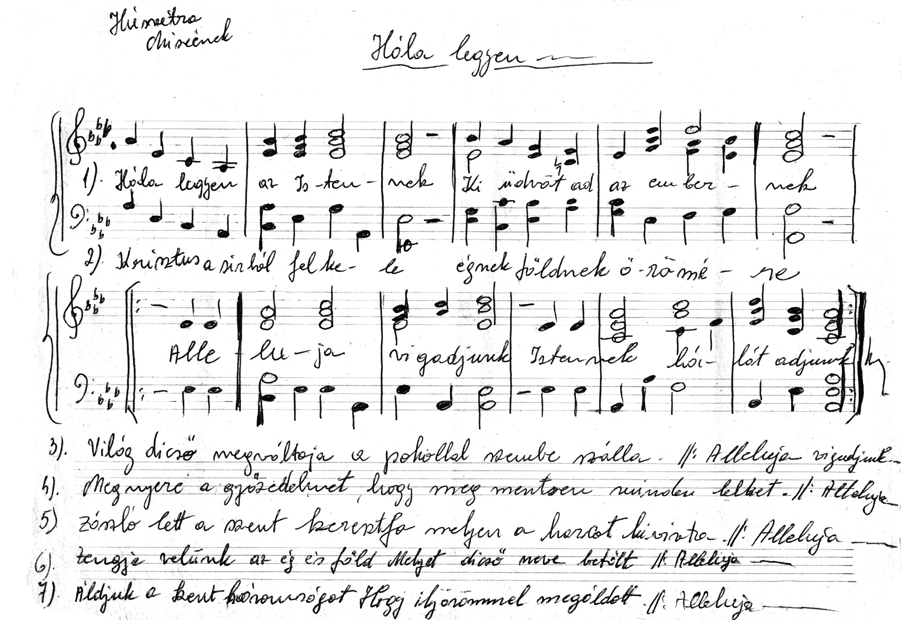 Húsvétra
Miseének
Hála legyen
1). Hála legyen az Is-ten-nek Ki üdvöt ad az em-ber-nek
2). Krisztus a sírból fel ke-le égnek földnek ö-röme-re
Alle-lu-ja vigadjunk Istennek há-lát adjunk
3). Világ dicső megváltója a pokollal szembe szálla. //: Alleluja vigadjunk
4). Megnyeré a győzedelmet, hogy meg mentsen minden lelket. //: Alleluja
5) Zászló lett a szent keresztfa melyen a harcot kivívta. //: Alleluja
6). Zengje velünk az ég és föld Melyet dicső neve betölt //: Alleluja
7). Áldjuk a Szent háromságot Hogy ily örömmel megáldott. //: Alleluja